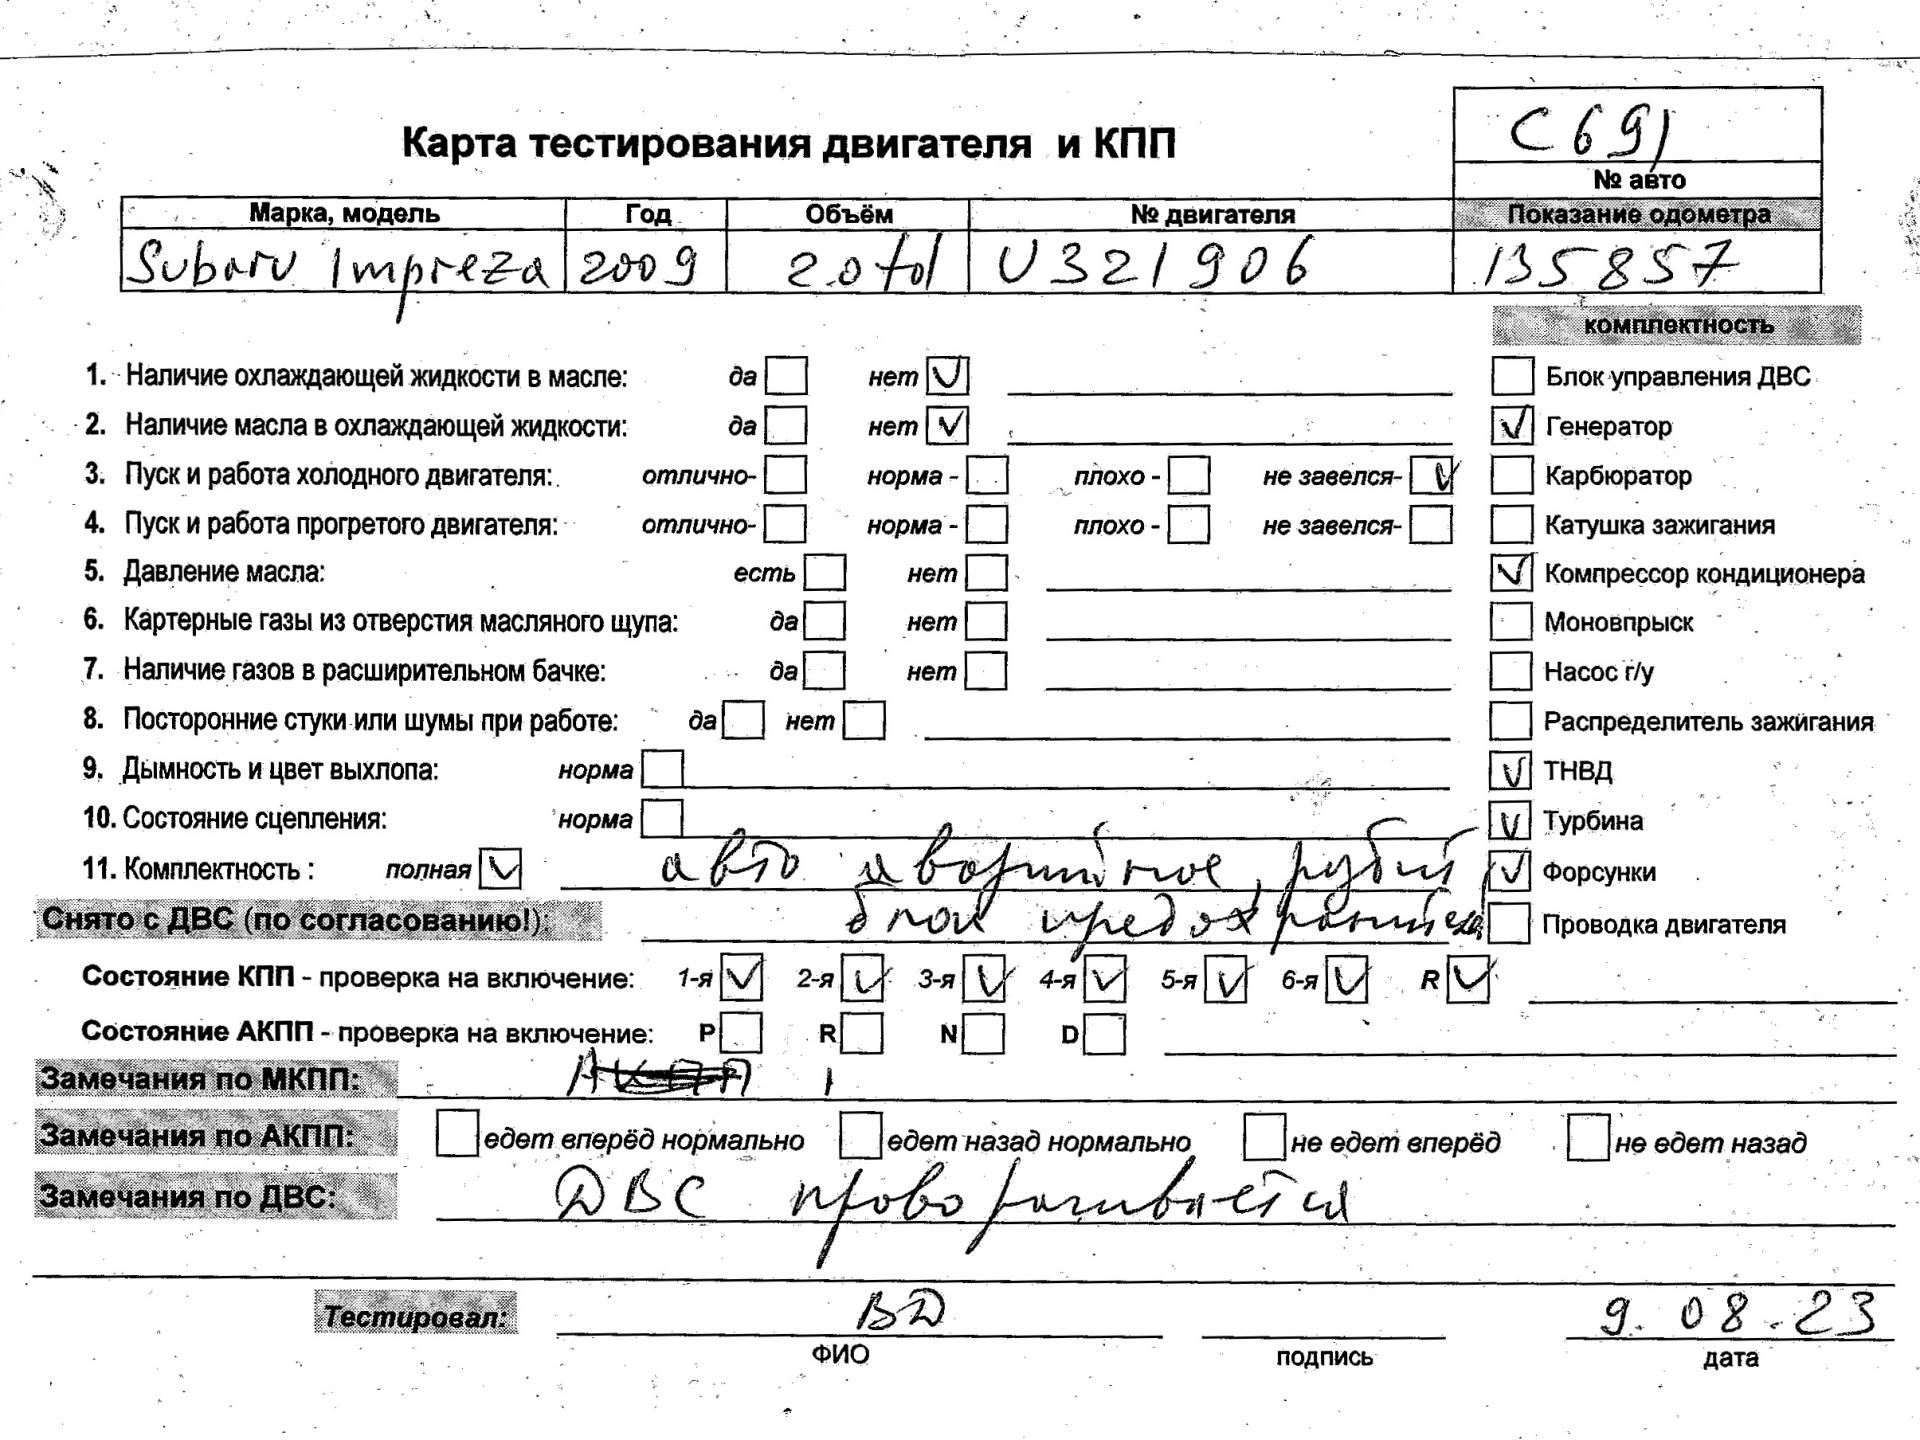 С691
Карта тестирования двигателя и КПП
№ авто
Марка, модель Год Объём № двигателя Показание одометра
Subaru Impreza 2009 2.0 td U321906 135857
комплектность
1. Наличие охлаждающей жидкости в масле: да нет Блок управления ДВС
2. Наличие масла в охлаждающей жидкости: да нет Генератор
3. Пуск и работа холодного двигателя: отлично- норма - плохо - не завелся- Карбюратор
4. Пуск и работа прогретого двигателя: отлично- норма - плохо - не завелся- Катушка зажигания
5. Давление масла: есть нет Компрессор кондиционера
6. Картерные газы из отверстия масляного щупа: да нет Моновпрыск
7. Наличие газов в расширительном бачке: да нет Насос г/у
8. Посторонние стуки или шумы при работе: да нет Распределитель зажигания
9. Дымность и цвет выхлопа: норма ТНВД
10. Состояние сцепления: норма Турбина
11. Комплектность : полная авто аварийное, Форсунки
Снято с ДВС (по согласованию!): блок Проводка двигателя
Состояние КПП - проверка на включение: 1-я 2-я 3-я 4-я 5-я 6-я R
Состояние АКПП - проверка на включение: P R N D
Замечания по МКПП:
Замечания по АКПП: едет вперёд нормально едет назад нормально не едет вперёд не едет назад
Замечания по ДВС: ДВС проворачивается
Тестировал: ВД 9.08.23
ФИО подпись дата